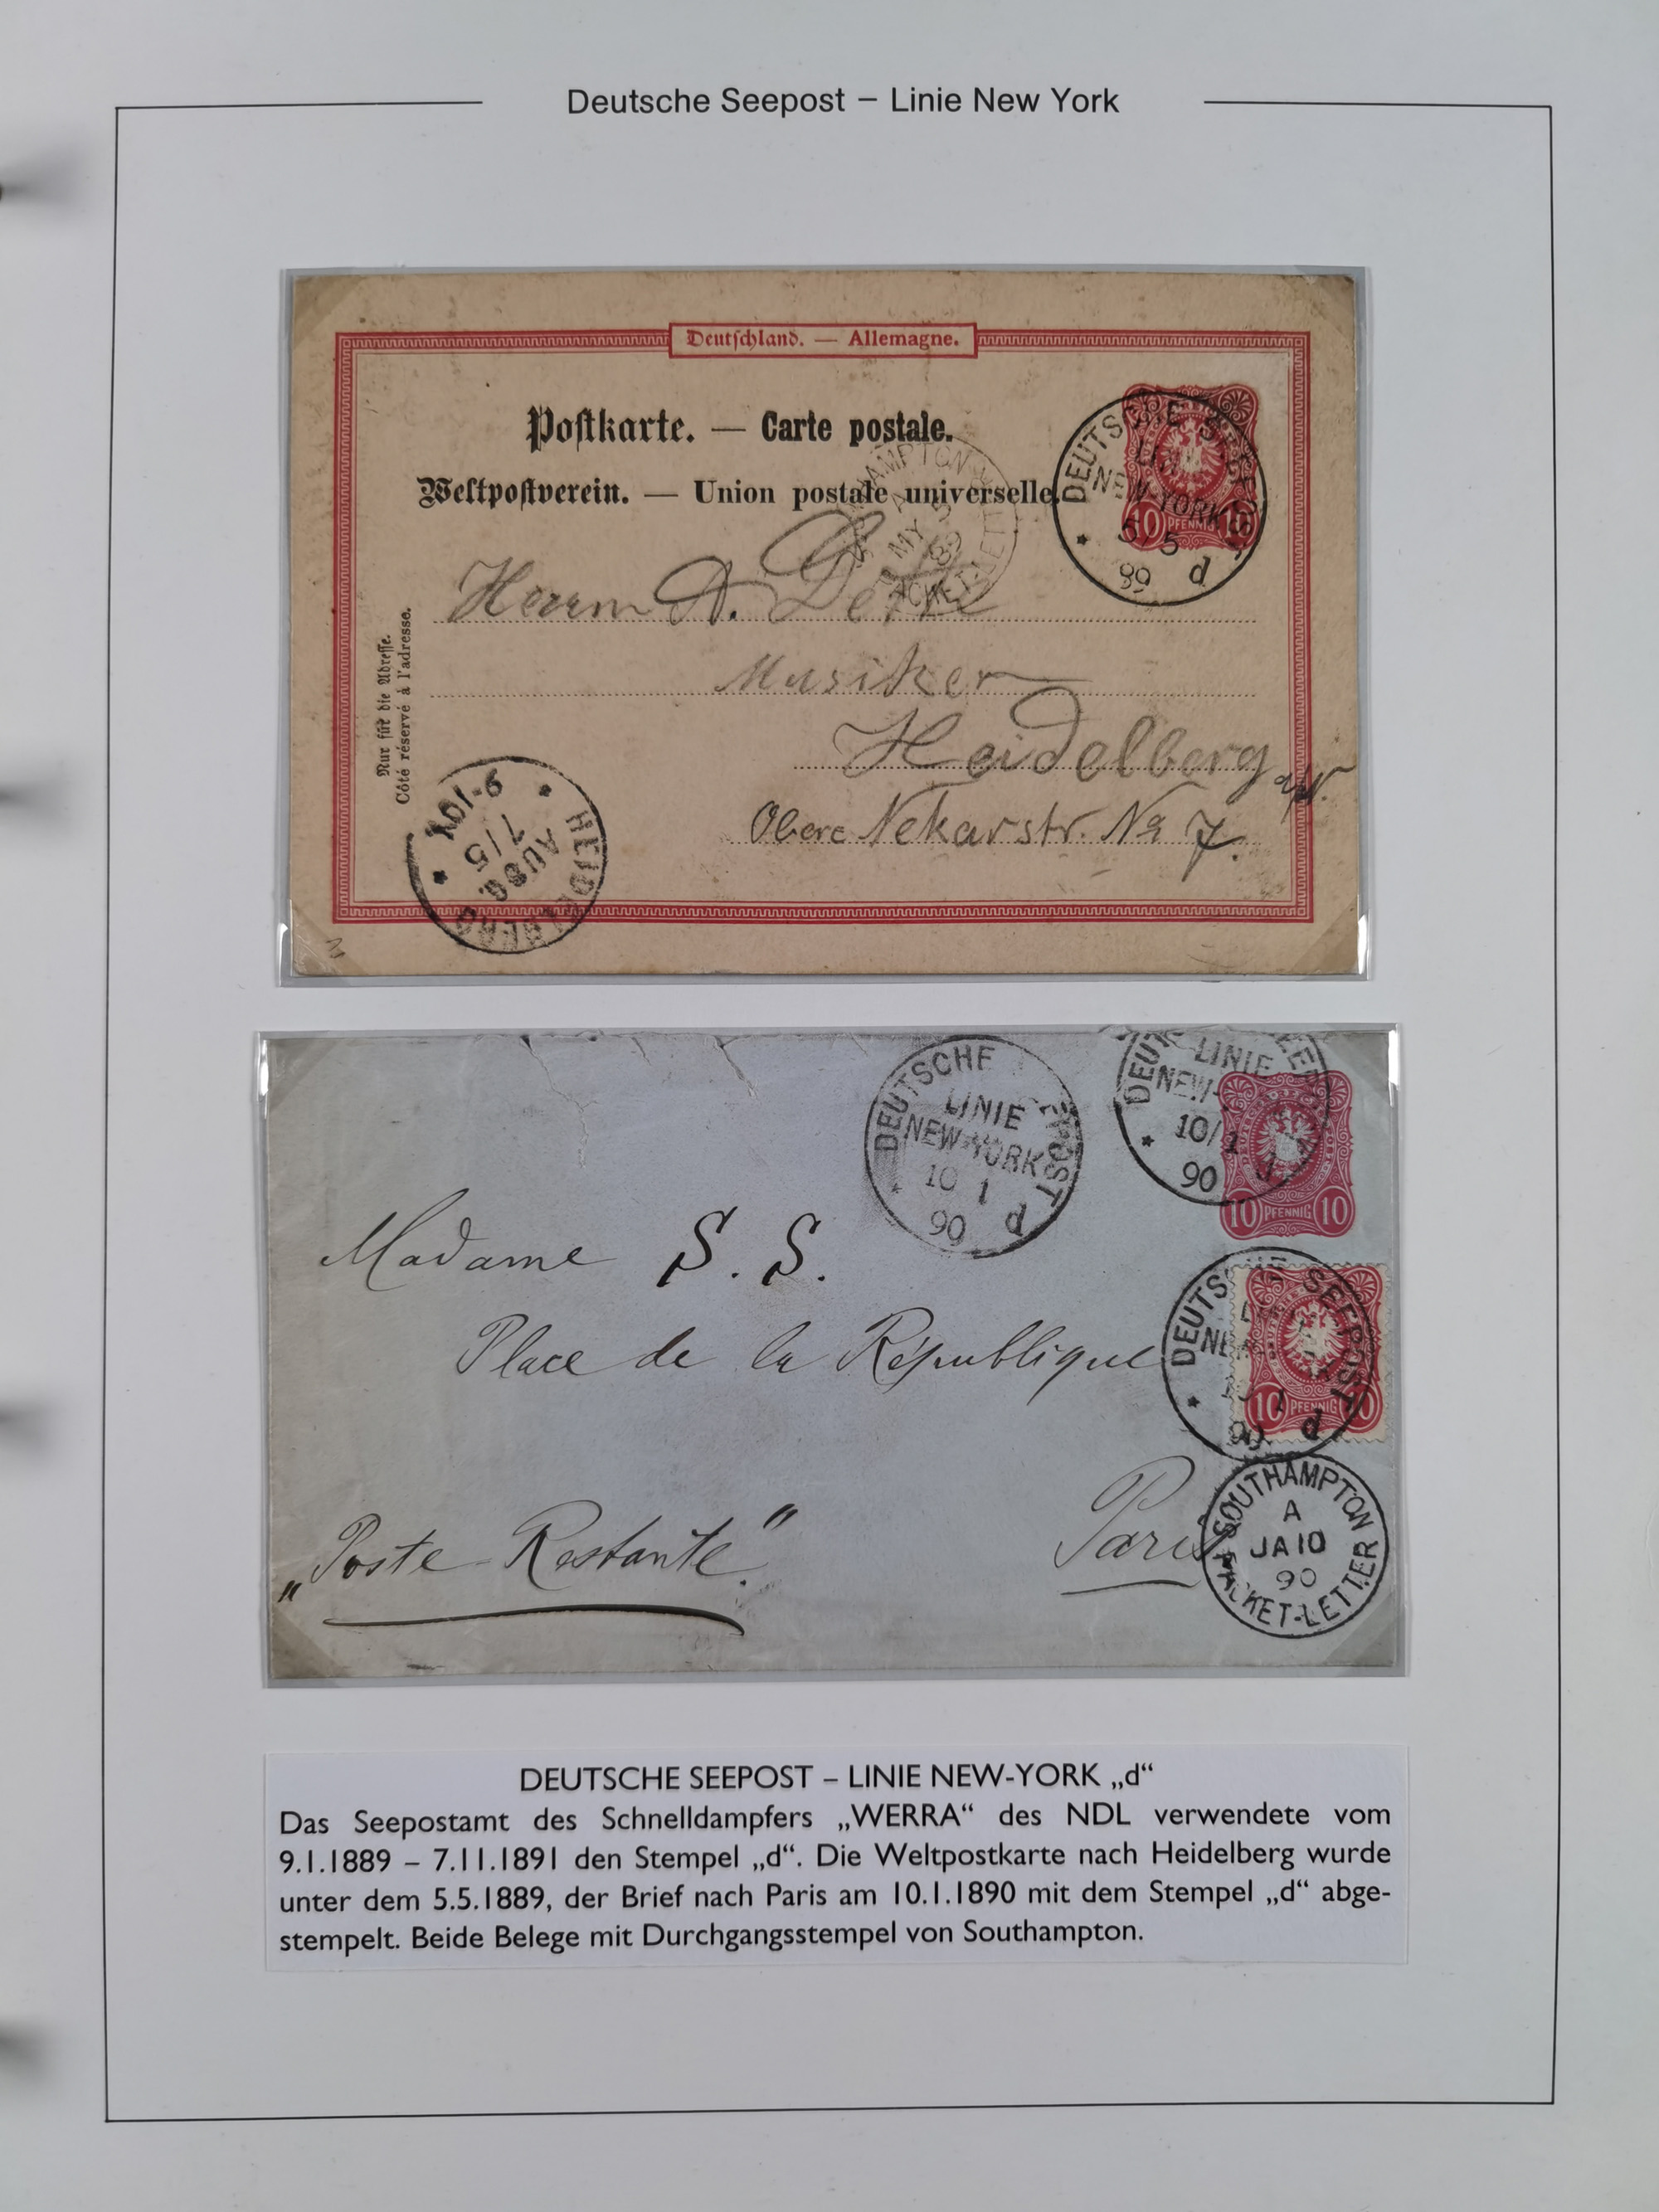 Deutsche Seepost – Linie New York
Deutschland. — Allemagne.
Postkarte. — Carte postale.
Weltpostverein. — Union postale universelle.
DEUTSCHE SEEPOST
LINIE
NEW-YORK
5/5
89 d
10 PFENNIG 10
SOUTHAMPTON
A
MY 5
89
PACKET-LETTER
Herrn A.
Musiker
Heidelberg a/N.
Obere Nekarstr. No 7.
Nur für die Adresse.
Côté réservé à l'adresse.
HEIDELBERG
AUSG.
7/5
9-10V
DEUTSCHE SEEPOST
LINIE
NEW-YORK
10 1
90 d
DEUTSCHE SEEPOST
LINIE
NEW-
10/1
90 d
10 PFENNIG 10
Madame S. S.
Place de la République
DEUTSCHE SEEPOST
1
90 d
10 PFENNIG 10
„Poste Restante"
Paris
SOUTHAMPTON
A
JA 10
90
PACKET-LETTER
DEUTSCHE SEEPOST – LINIE NEW-YORK „d“
Das Seepostamt des Schnelldampfers „WERRA“ des NDL verwendete vom
9.1.1889 – 7.11.1891 den Stempel „d“. Die Weltpostkarte nach Heidelberg wurde
unter dem 5.5.1889, der Brief nach Paris am 10.1.1890 mit dem Stempel „d“ abge-
stempelt. Beide Belege mit Durchgangsstempel von Southampton.